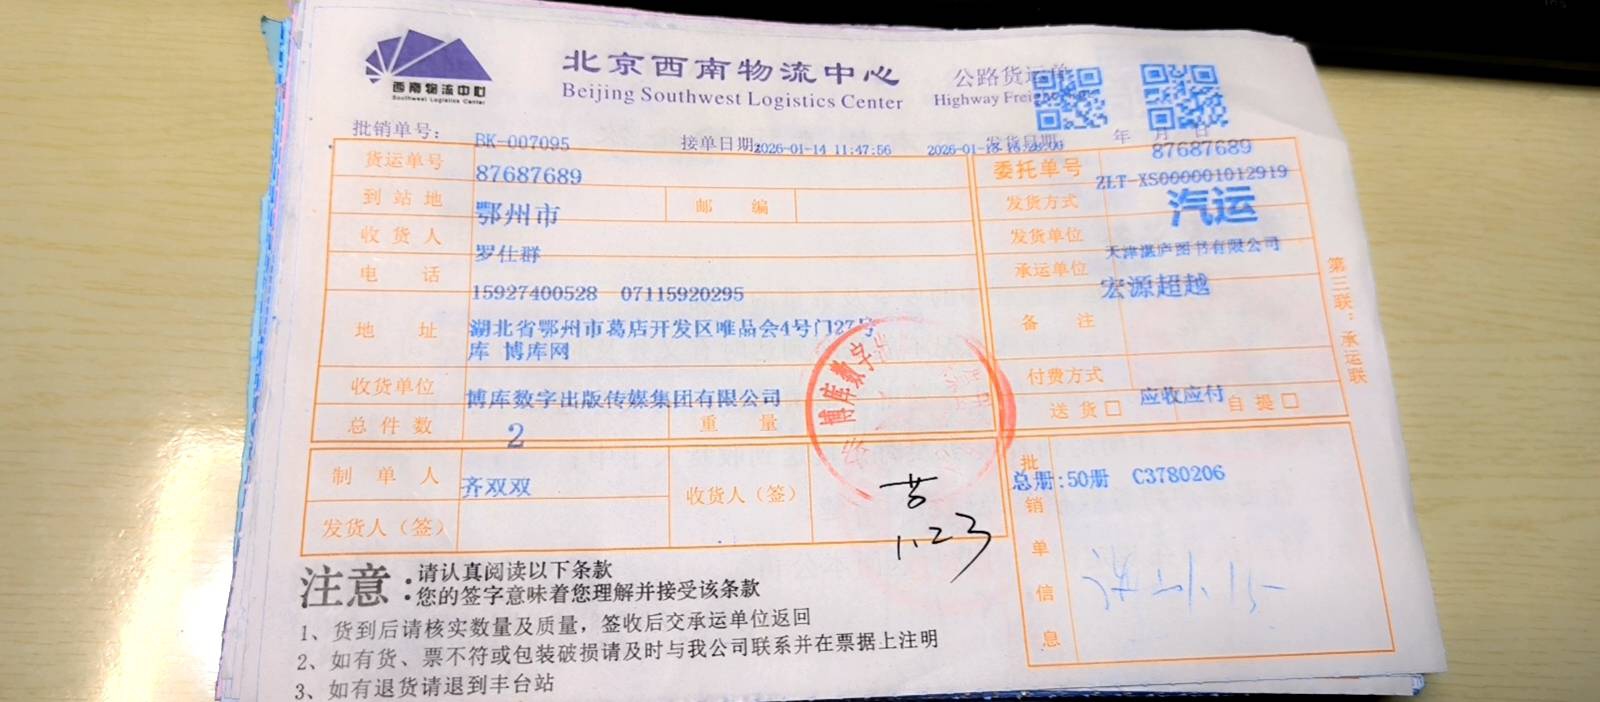 西南物流中心
Southwest Logistics Center
北京西南物流中心
Beijing Southwest Logistics Center
公路货运单
Highway
批销单号: BK-007095
接单日期: 2026-01-14 11:47:56
发货日期: 年 月 日
货运单号 87687689
到站地 鄂州市 邮编
收货人 罗仕群
电话 15927400528 07115920295
地址 湖北省鄂州市葛店开发区唯品会4号门27号
库 博库网
收货单位 博库数字出版传媒集团有限公司
总件数 2 重量
制单人 齐双双
收货人（签）
发货人（签）
87687689
委托单号 ZLT-XS000001012919
发货方式 汽运
发货单位 天津湛庐图书有限公司
承运单位 宏源超越
备注
付费方式 应收应付
送货□ 自提□
批销单信息
总册:50册 C3780206
第三联：承运联
博库数字
1.23
注意：请认真阅读以下条款
您的签字意味着您理解并接受该条款
1、货到后请核实数量及质量，签收后交承运单位返回
2、如有货、票不符或包装破损请及时与我公司联系并在票据上注明
3、如有退货请退到丰台站